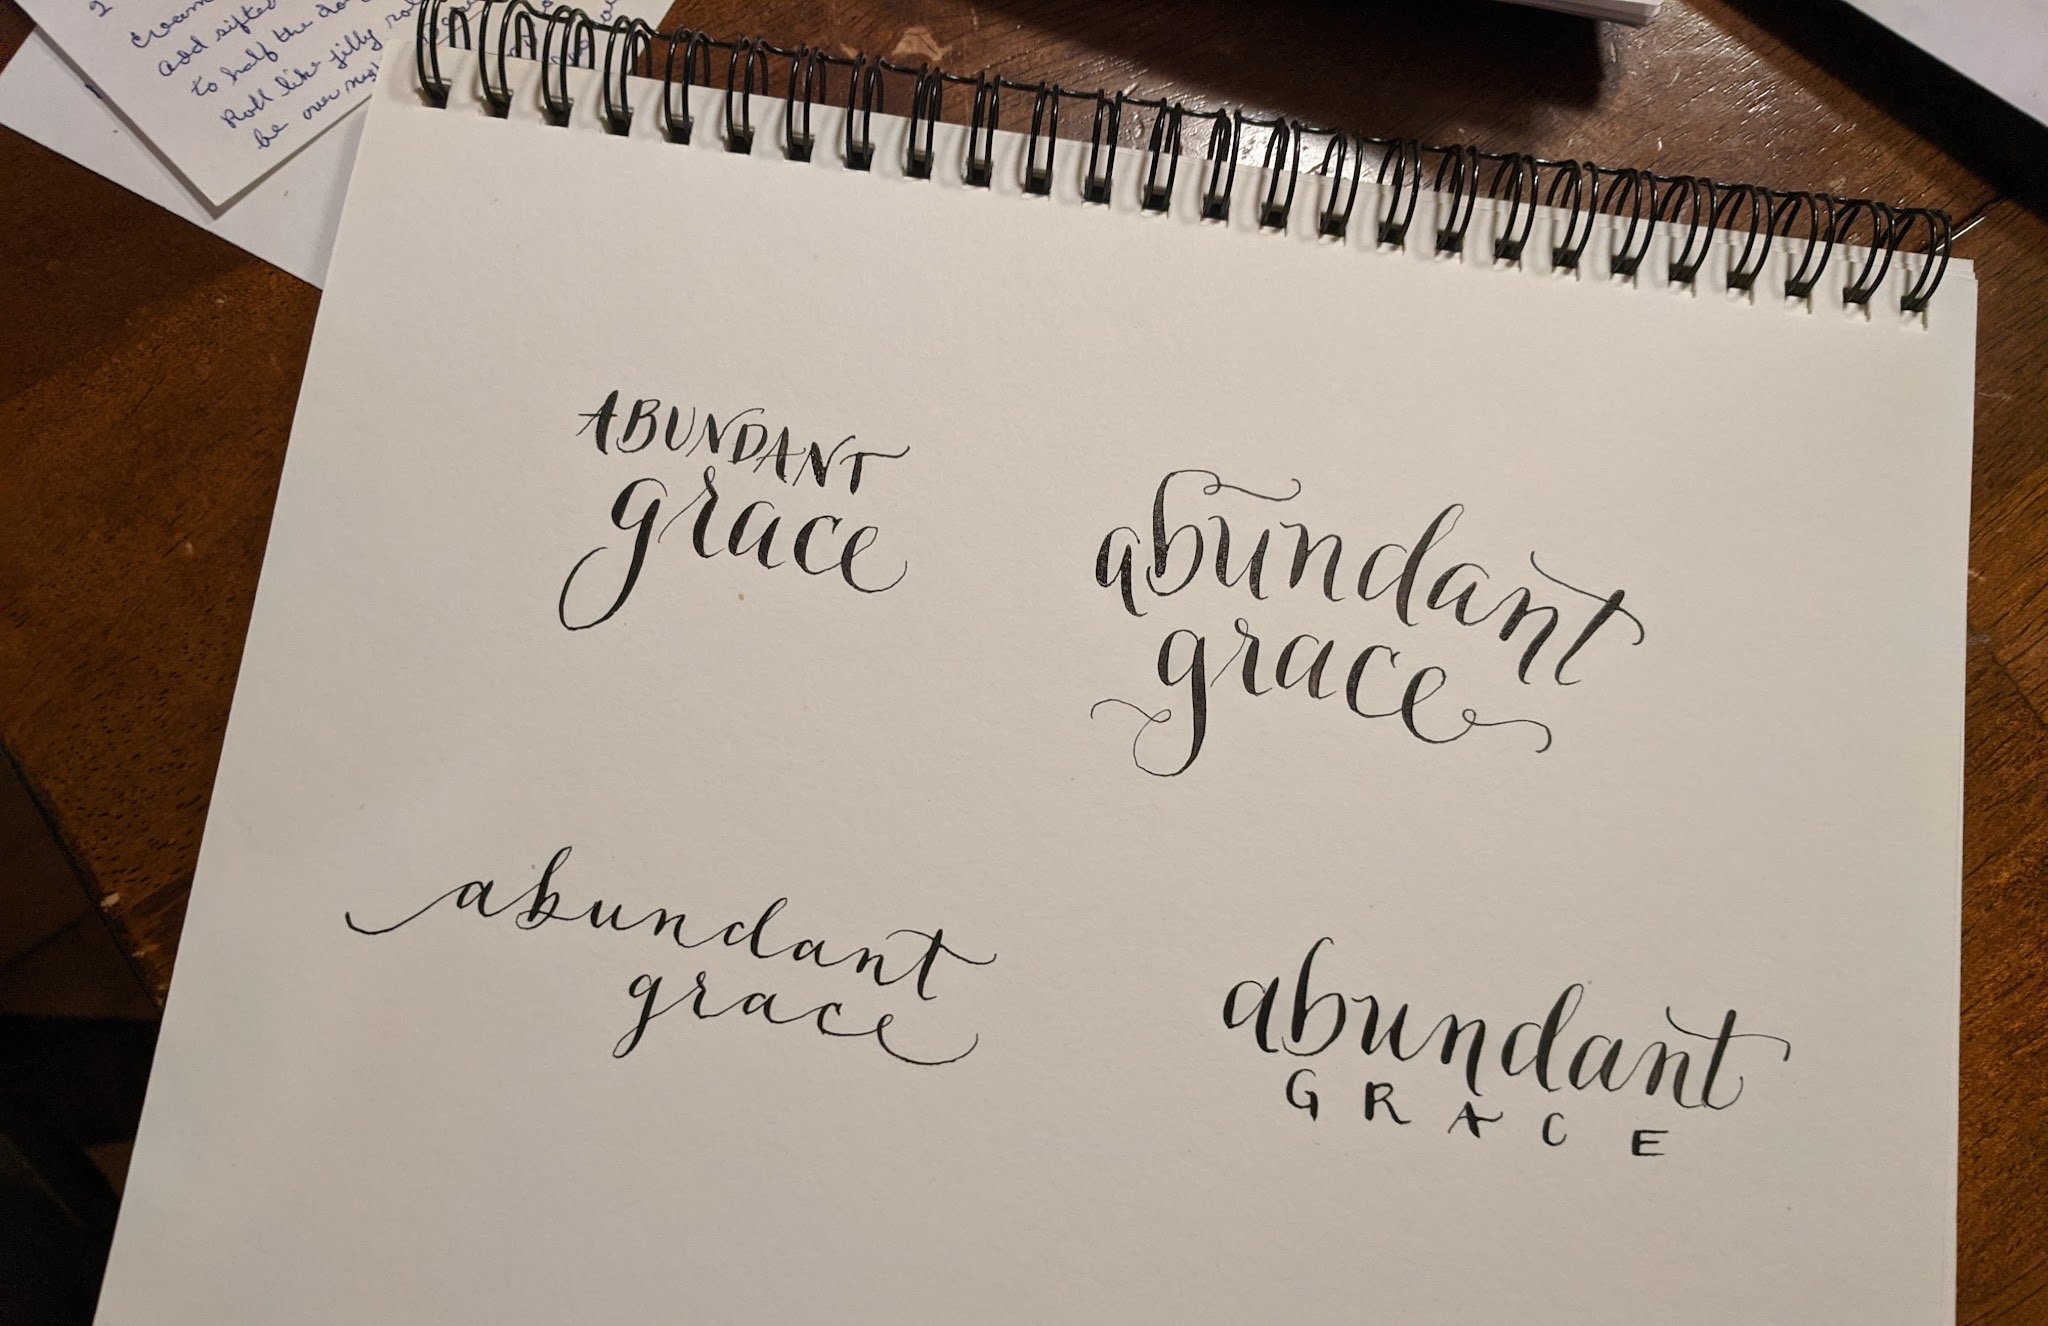 2
Cream
add sifted
to half the do
Roll like jilly rol
be over nig
ABUNDANT
grace
abundant
grace
abundant
grace
abundant
GRACE